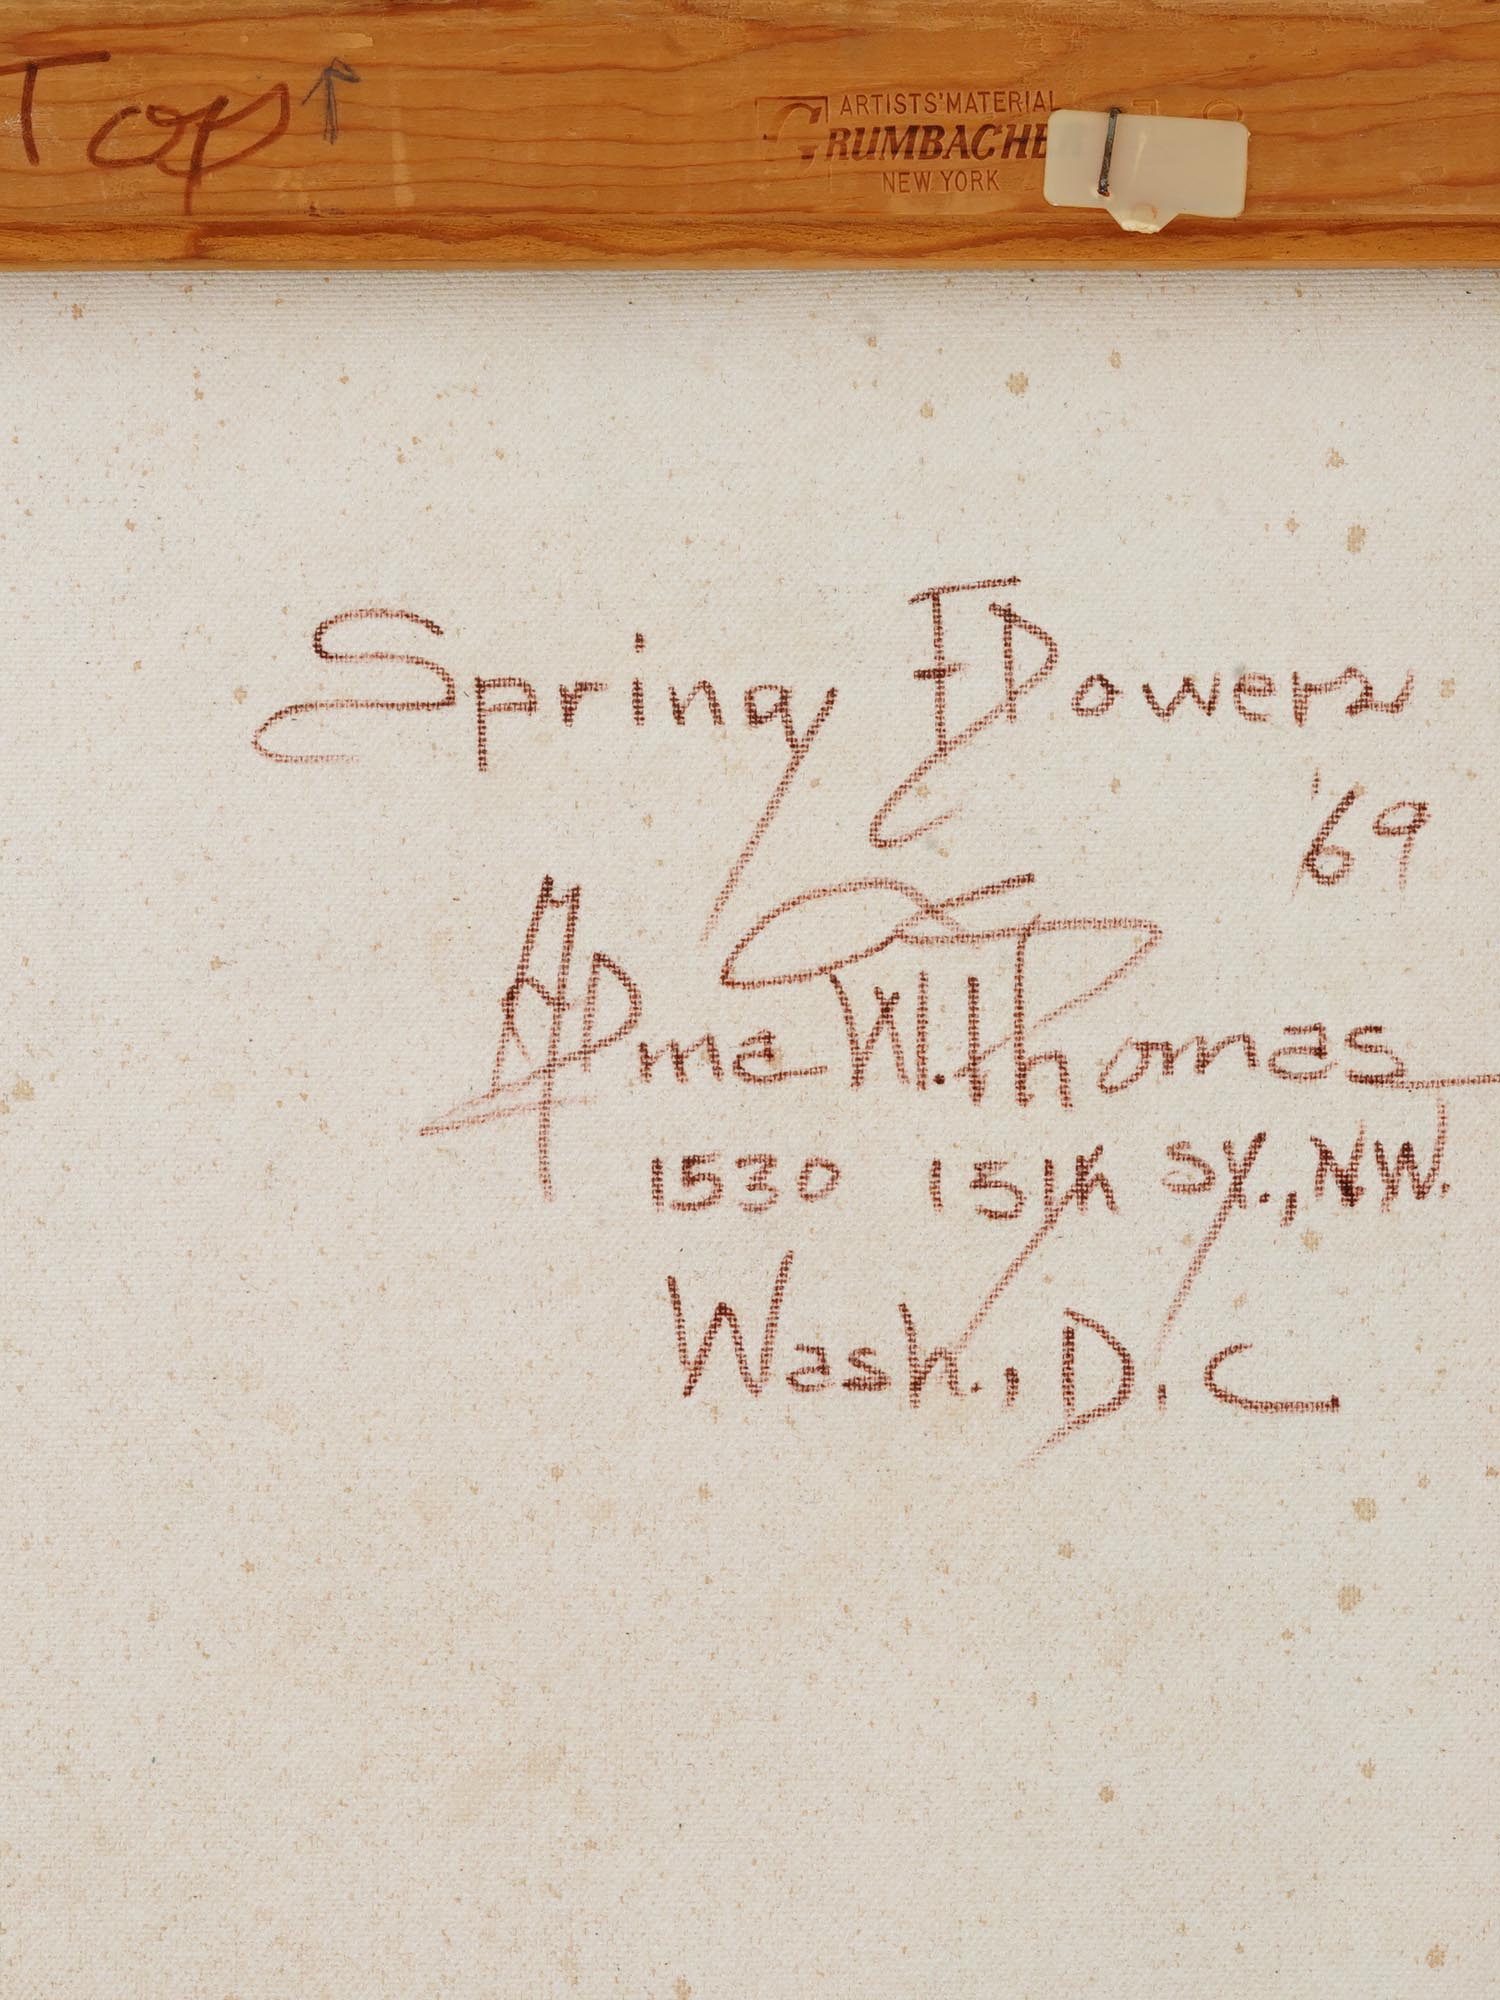 Top ↑
ARTISTS' MATERIAL
GRUMBACHE
NEW YORK
Spring Flowers
'69
Alma W. Thomas
1530 15th St., N.W.
Wash., D.C